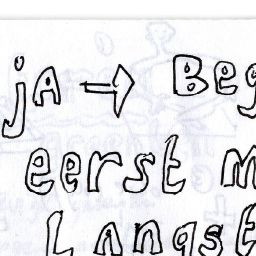 ja → Beg
eerst m
Langst